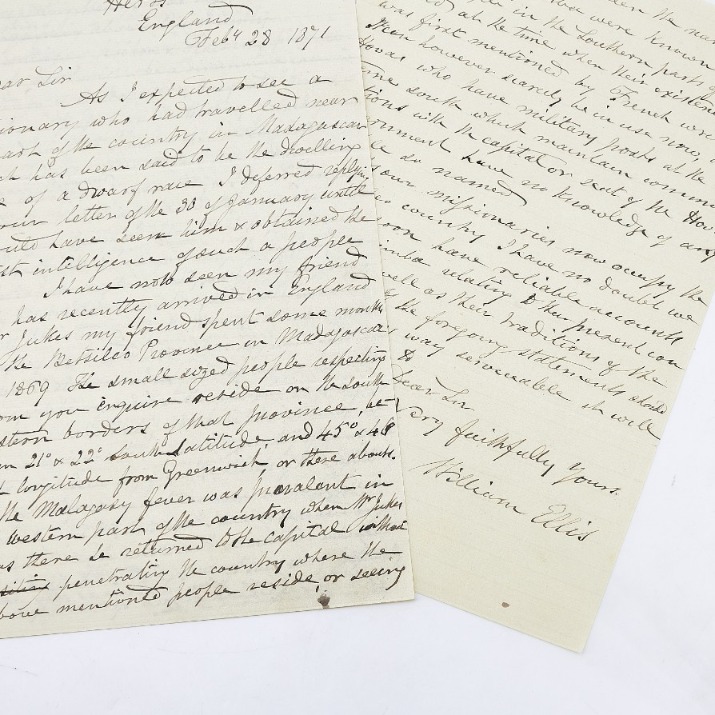 Herts
England
Feby 28 1871
ear Sir
As I expected to see a
ionary who had travelled near
part of the country in Madagascar
ch has been said to be the dwelling
of a dwarf race I deferred
our letter of the 33 of January until
have seen him & obtained the
st intelligence of such a people
I have now seen my friend
r has recently arrived in England
Jukes my friend spent some months
the Betsileo Province in Madagascar
1869 The small sized people respecting
om you enquire reside on the south
stern borders of that province, be-
n 21° & 22° south Latitude, and 45° & 46
Longitude from Greenwich or there abouts.
the Malagasy fever was prevalent in
western part of the country when Mr Jukes
as there he returned to the Capital without
penetrating the country where the
bove mentioned people reside, or seeing
where the
were known
le in the Southern parts of
at the time when their existence
was first mentioned by French
however scarcely be in use now,
Hovas who have military posts at the
south which maintain
tions with the capital or seat of the Hov
ernment have no knowledge of any
le so named
our missionaries now occupy the
country I have no doubt we
soon have reliable accounts
relating to their present con
well as their traditions of the
the foregoing statements should
way serviceable it will
Dear Sir
ery faithfully yours
William Ellis